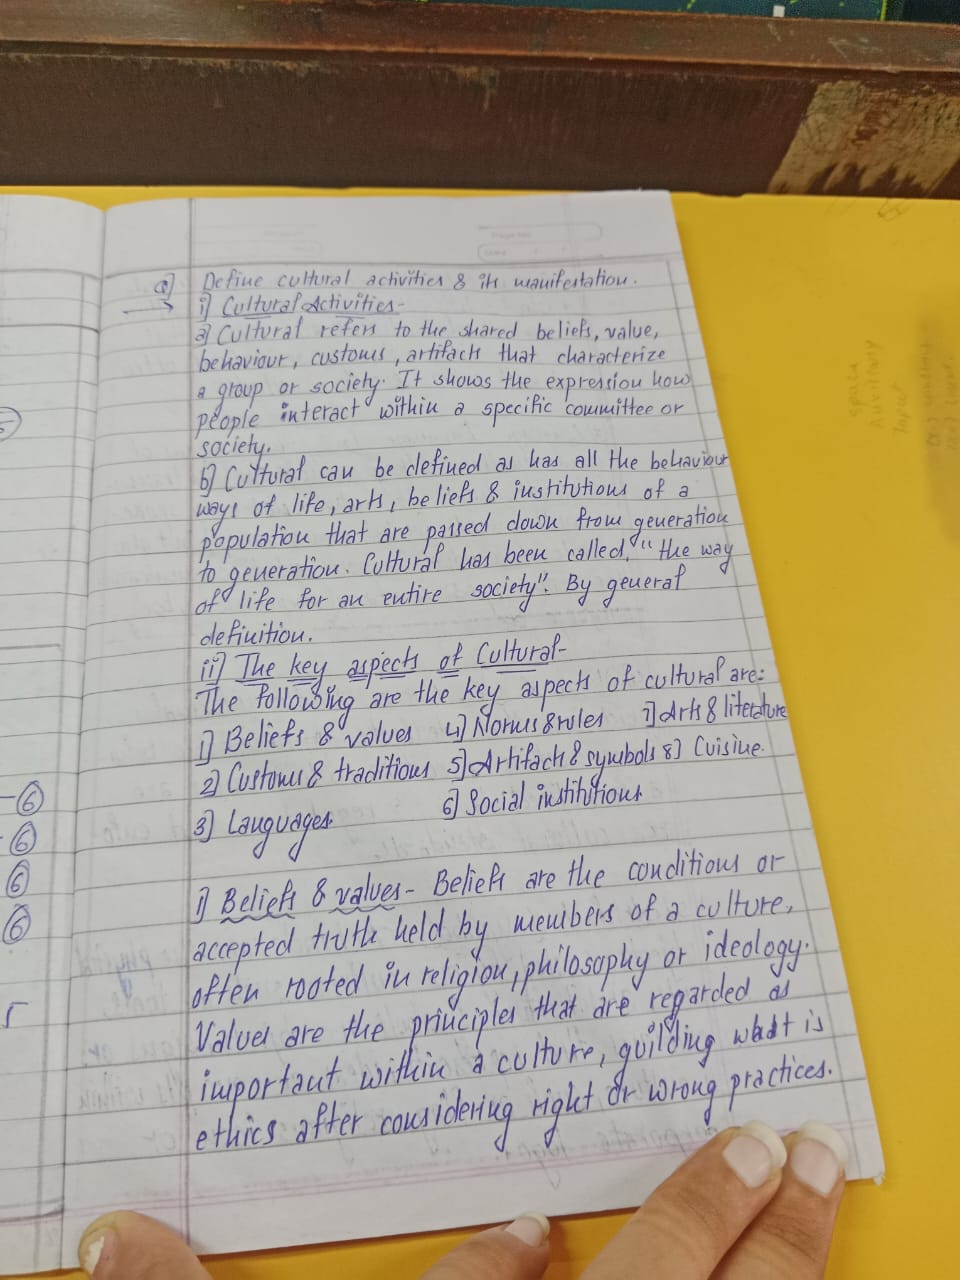 Q] Define cultural activities & its manifestation.
→ i] Cultural Activities-
a] Cultural refers to the shared beliefs, value,
behaviour, customs, artifacts that characterize
a group or society. It shows the expression how
people interact within a specific committee or
society.
b] Cultural can be defined as has all the behaviour
ways of life, arts, beliefs & institutions of a
population that are passed down from generation
to generation. Cultural has been called, "the way
of life for an entire society". By general
definition.
ii] The key aspects of Cultural-
The following are the key aspects of cultural are:
1] Beliefs & values 4] Norms & rules 7] Arts & literature
2] Customs & traditions 5] Artifacts & symbols 8] Cuisine.
3] Languages 6] Social institutions
i] Beliefs & values- Beliefs are the conditions or
accepted truth held by members of a culture,
often rooted in religion, philosophy or ideology.
Values are the principles that are regarded as
important within a culture, guilding what is
ethics after considering right or wrong practices.
-6
-6
6
6
5